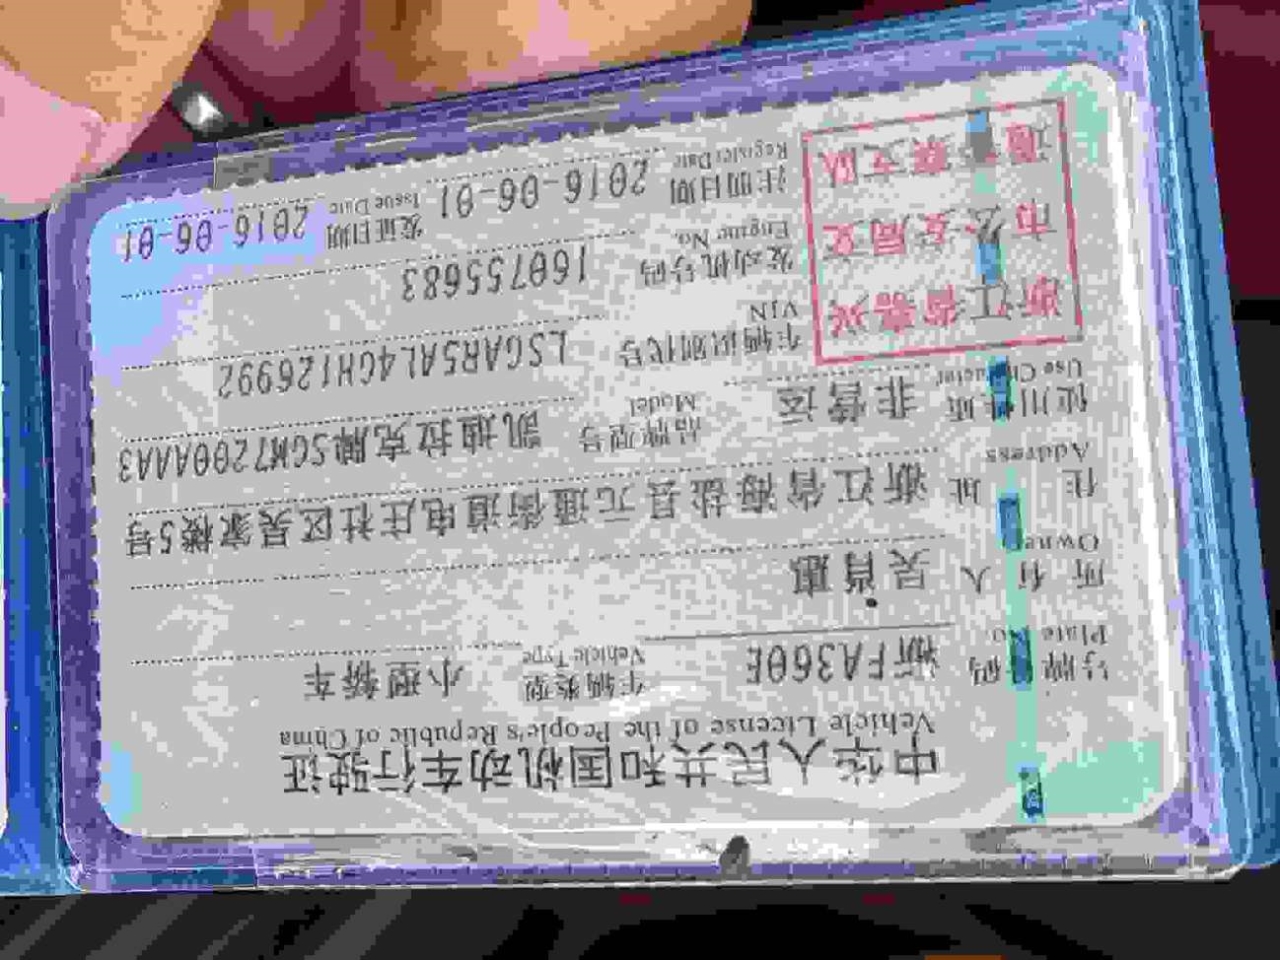 中华人民共和国机动车行驶证
Vehicle License of the People's Republic of China
号牌号码 浙FA360E 车辆类型 小型轿车
Plate No. Vehicle Type
所有人 吴肖惠
Owner
住址 浙江省海盐县元通街道电庄社区吴家楼5号
Address
使用性质 非营运 品牌型号 凯迪拉克牌SGM7200AAA3
Use Character Model
浙江省嘉兴市公安局交通警察支队
车辆识别代号 LSGAR5AL4GH126992
VIN
发动机号码 160755683
Engine No.
注册日期 2016-06-01 发证日期 2016-06-01
Register Date Issue Date